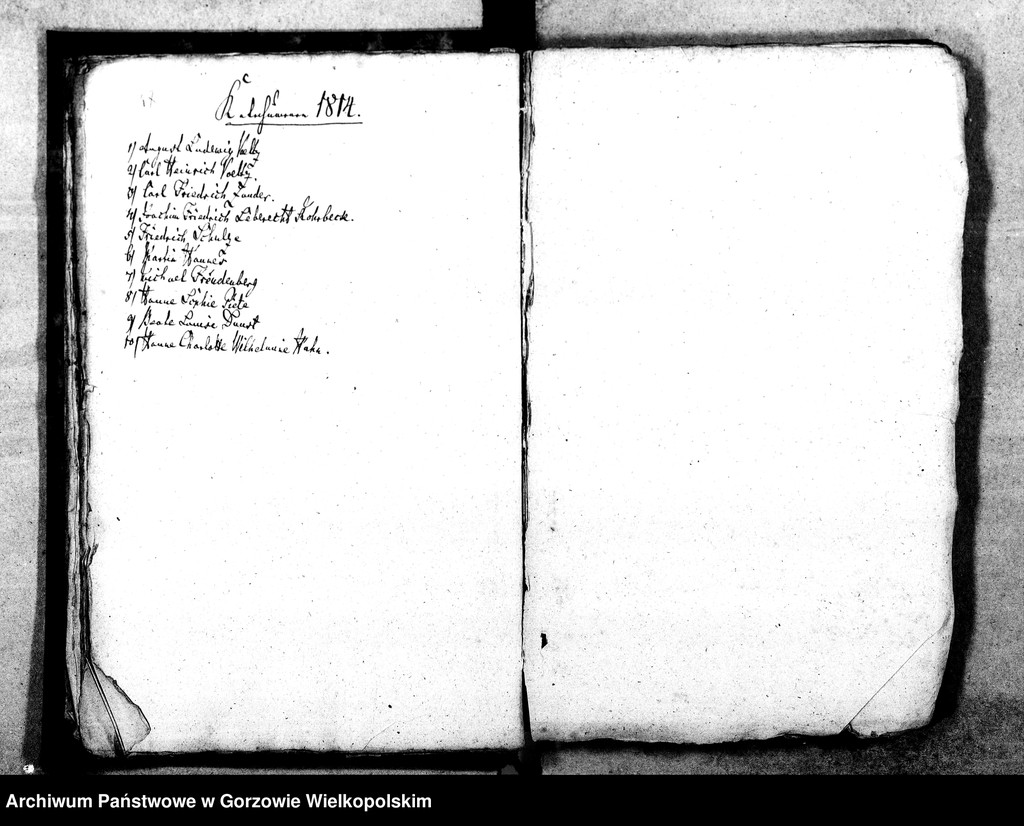 1814.
1) August Ludewig Voeltz
2) Carl Heinrich Voeltz.
3) Carl Friedrich Zander.
4) Joachim Friedrich Leberecht Kohrbeck.
5) Friedrich Schulze
6) Martin
7) Michael Freudenberg
8) Hanne Sophie
9) Beate Louise
10) Hanne Charlotte Wilhelmine Hahn.
Archiwum Państwowe w Gorzowie Wielkopolskim